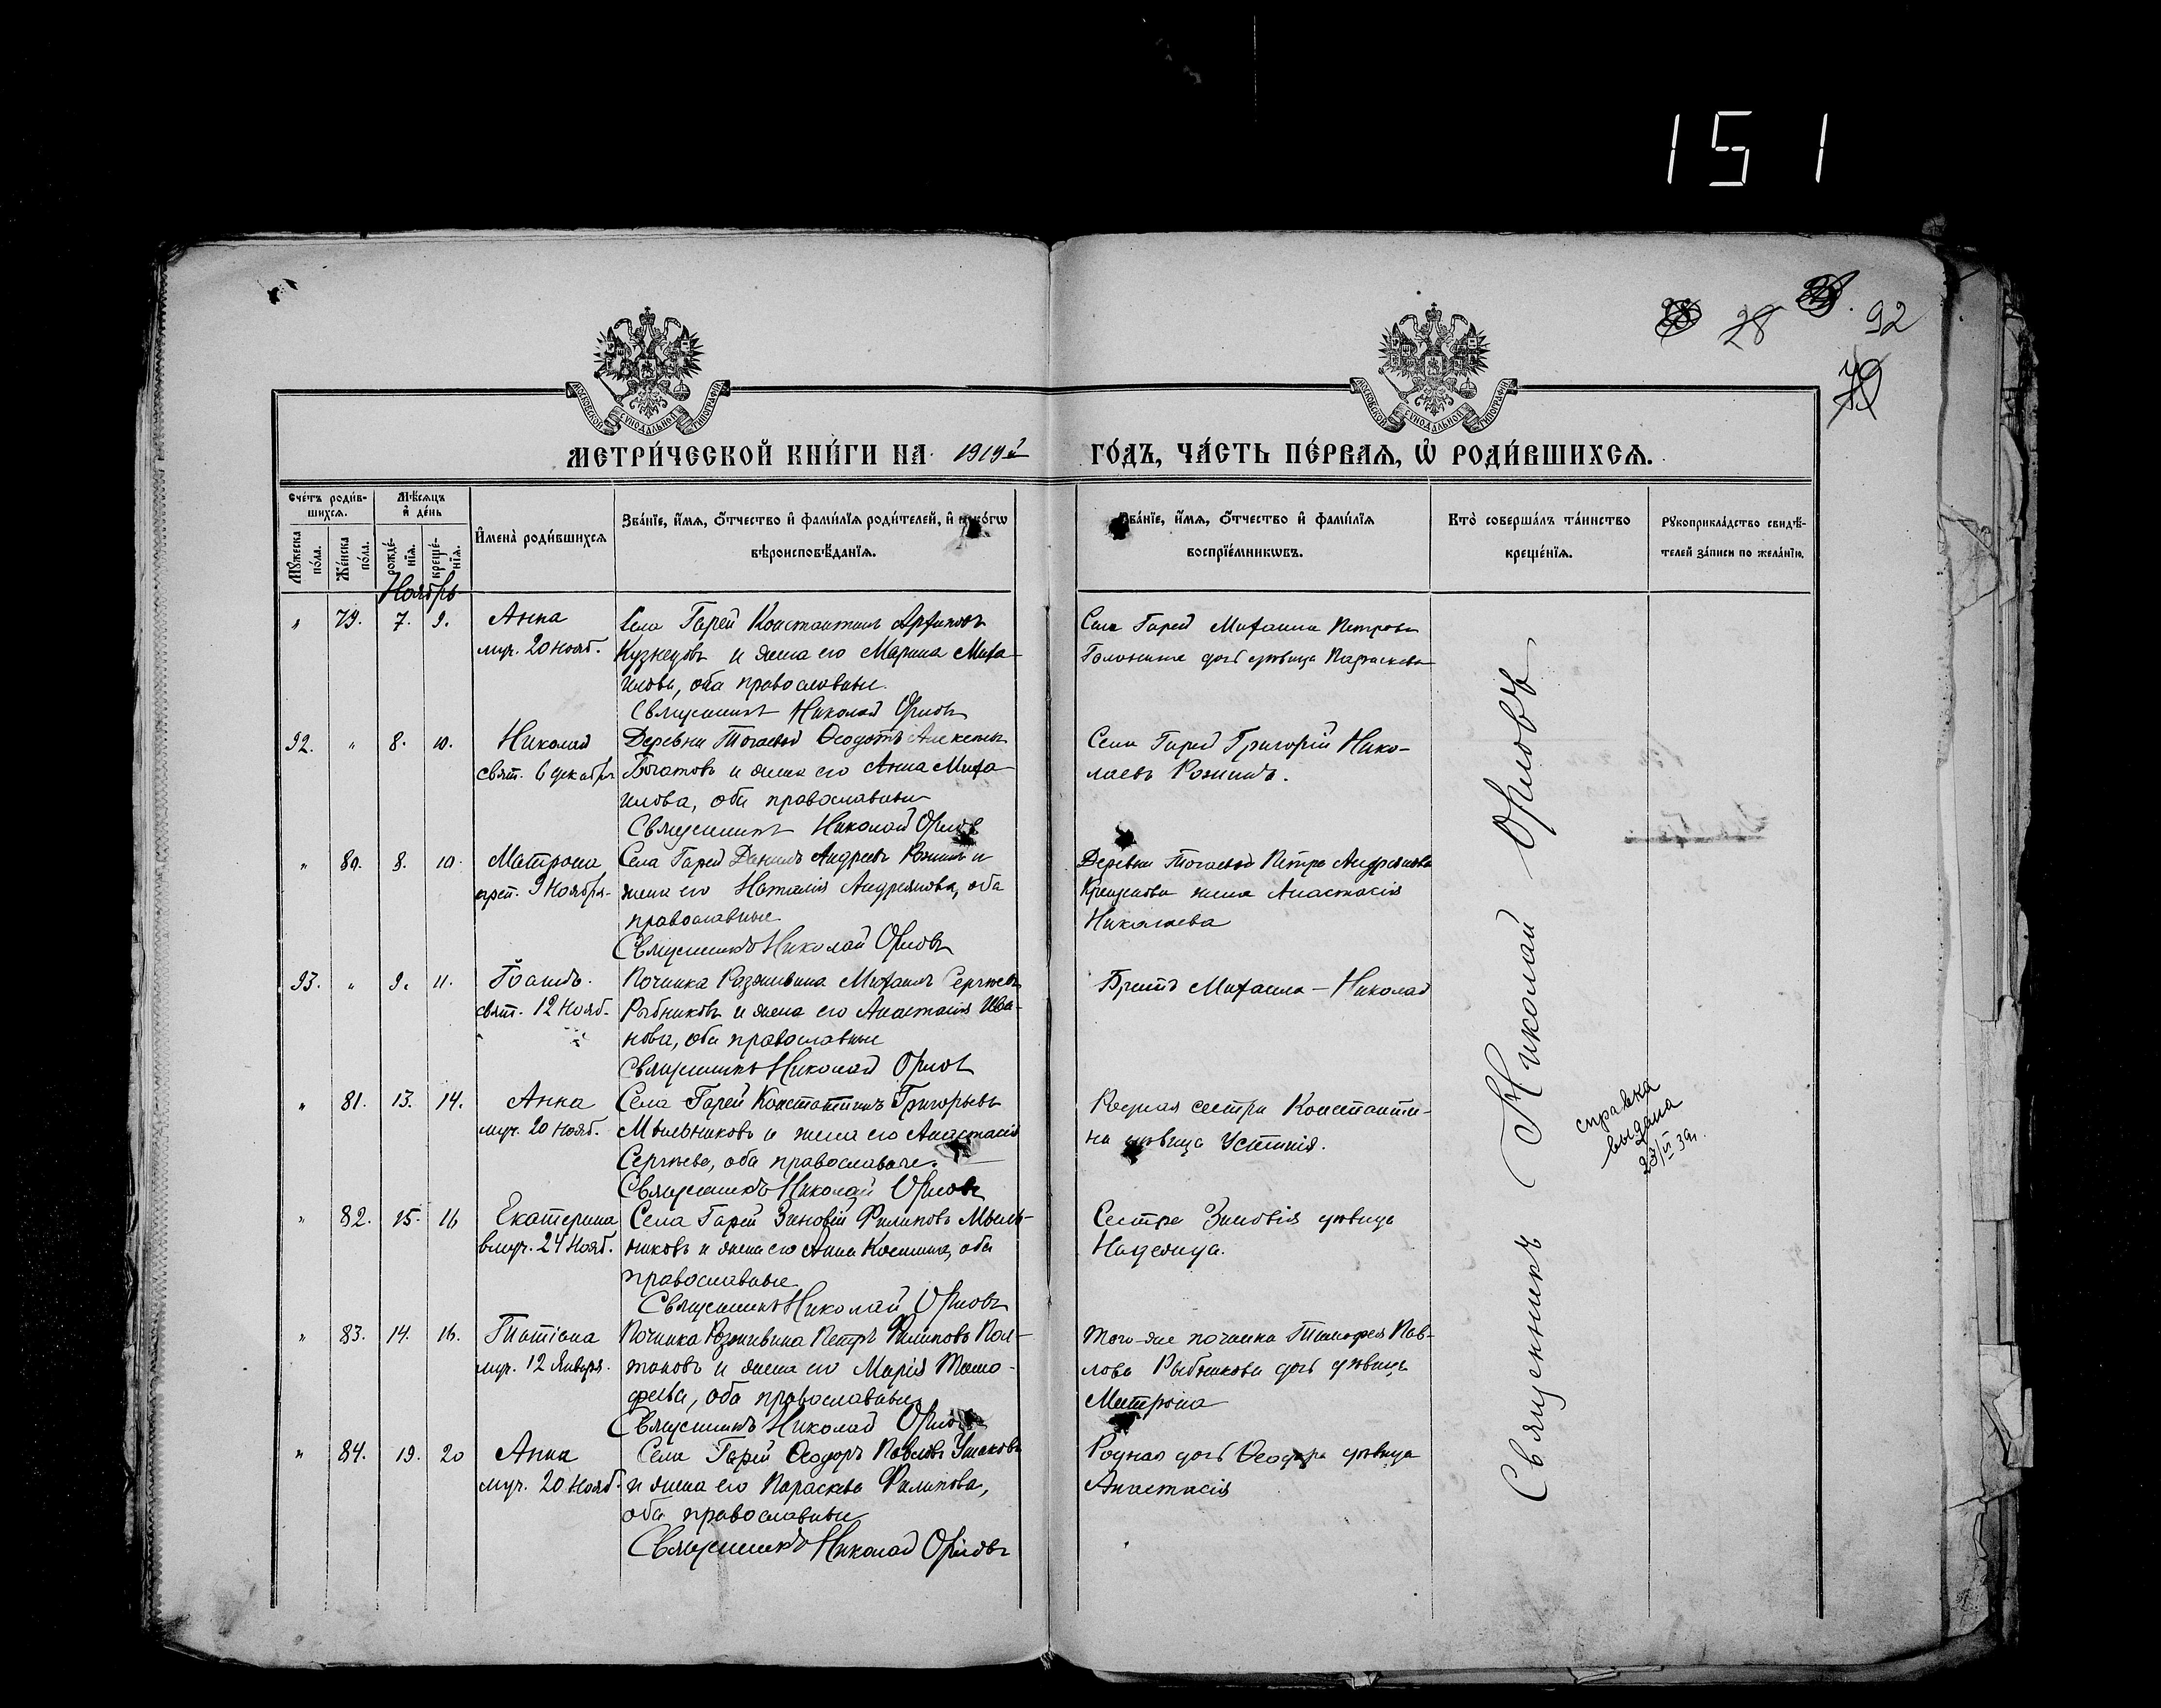 151
28
92
МОСКОВСКОЙ СѴНОДАЛЬНОЙ ТИПОГРАФІИ
МОСКОВСКОЙ СѴНОДАЛЬНОЙ ТИПОГРАФІИ
МЕТРИ́ЧЕСКОЙ КНИ́ГИ НА 1919й ГО́ДЪ, ЧА́СТЬ ПЕ́РВАѦ, Ѡ҆ РОДИ́ВШИХСѦ.
Сче́тъ роди́в-
шихсѧ.
Мꙋ́жеска по́ла.
Же́нска по́ла.
Мѣ́сѧцъ
и҆ де́нь
рожде́-
нїѧ.
креще́-
нїѧ.
И҆мена̀ роди́вшихсѧ
Зва́нїе, и҆́мѧ, ѻ҆́тчество и҆ фами́лїѧ роди́телей, и҆
вѣроисповѣ́данїѧ.
Зва́нїе, и҆́мѧ, ѻ҆́тчество и҆ фами́лїѧ
воспрїе́мникѡвъ.
Кто̀ соверша́лъ та́инство
креще́нїѧ.
Рꙋкоприкла́дство свидѣ́-
телей за́писи по жела́нїю.
Ноябрь
" 79. 7. 9. Анна
муч. 20 нояб.
Села Гарей Константинъ
Кузнецовъ и жена его Марина Миха-
илова, оба православные.
Священникъ Николай Орловъ
Села Гарей Михаила Петрова
дочь дѣвица Параскева
92. " 8. 10. Николай
свят. 6 декабря
Деревни Тогаевой Ѳеодотъ Алексѣевъ
Богатовъ и жена его Анна Миха-
илова, оба православные
Священникъ Николай Орлов
Села Гарей Григорій Нико-
лаевъ
" 80. 8. 10. Матрона
преп. 9 Ноября.
Села Гарей Даніилъ Андреевъ и
жена его Наталія Андреянова, оба
православные.
Священникъ Николай Орловъ
Деревни Тогаевой Петра Андреянова
жена Анастасія
Николаева
93. " 9. 11. Іоаннъ.
свят. 12 Нояб.
Починка Разживина Михаилъ Сергѣевъ
Рыбниковъ и жена его Анастасія Ива-
нова, оба православные
Священникъ Николай Орловъ
Братъ Михаила – Николай
" 81. 13. 14. Анна
муч. 20 нояб.
Села Гарей Константинъ Григорьевъ
Мыльниковъ и жена его Анастасія
Сергѣева, оба православные.
Священникъ Николай Орловъ
Родная сестра Константи-
на дѣвица Устинія.
" 82. 15. 16 Екатерина
влмуч. 24 Нояб.
Села Гарей Зиновій Филиповъ Мыль-
никовъ и жена его Анна Косьмина, оба
православные
Священникъ Николай Орловъ
Сестра Зиновія дѣвица
Надежда.
" 83. 14. 16. Татіана
муч. 12 Января.
Починка Разживина Петръ Филиповъ Пол-
таковъ и жена его Марія Тимо-
феева, оба православные
Священникъ Николай Орловъ
Того-же починка Тимофея Пав-
лова Рыбникова дочь дѣвица
Матрона
" 84. 19. 20 Анна
муч. 20 Нояб.
Села Гарей Ѳеодоръ Павловъ Ушаковъ
и жена его Параскева Филипова,
оба православные
Священникъ Николай Орловъ
Родная дочь Ѳеодора дѣвица
Анастасія
Священникъ Николай Орловъ
справка
выдана
23/VI 39г.